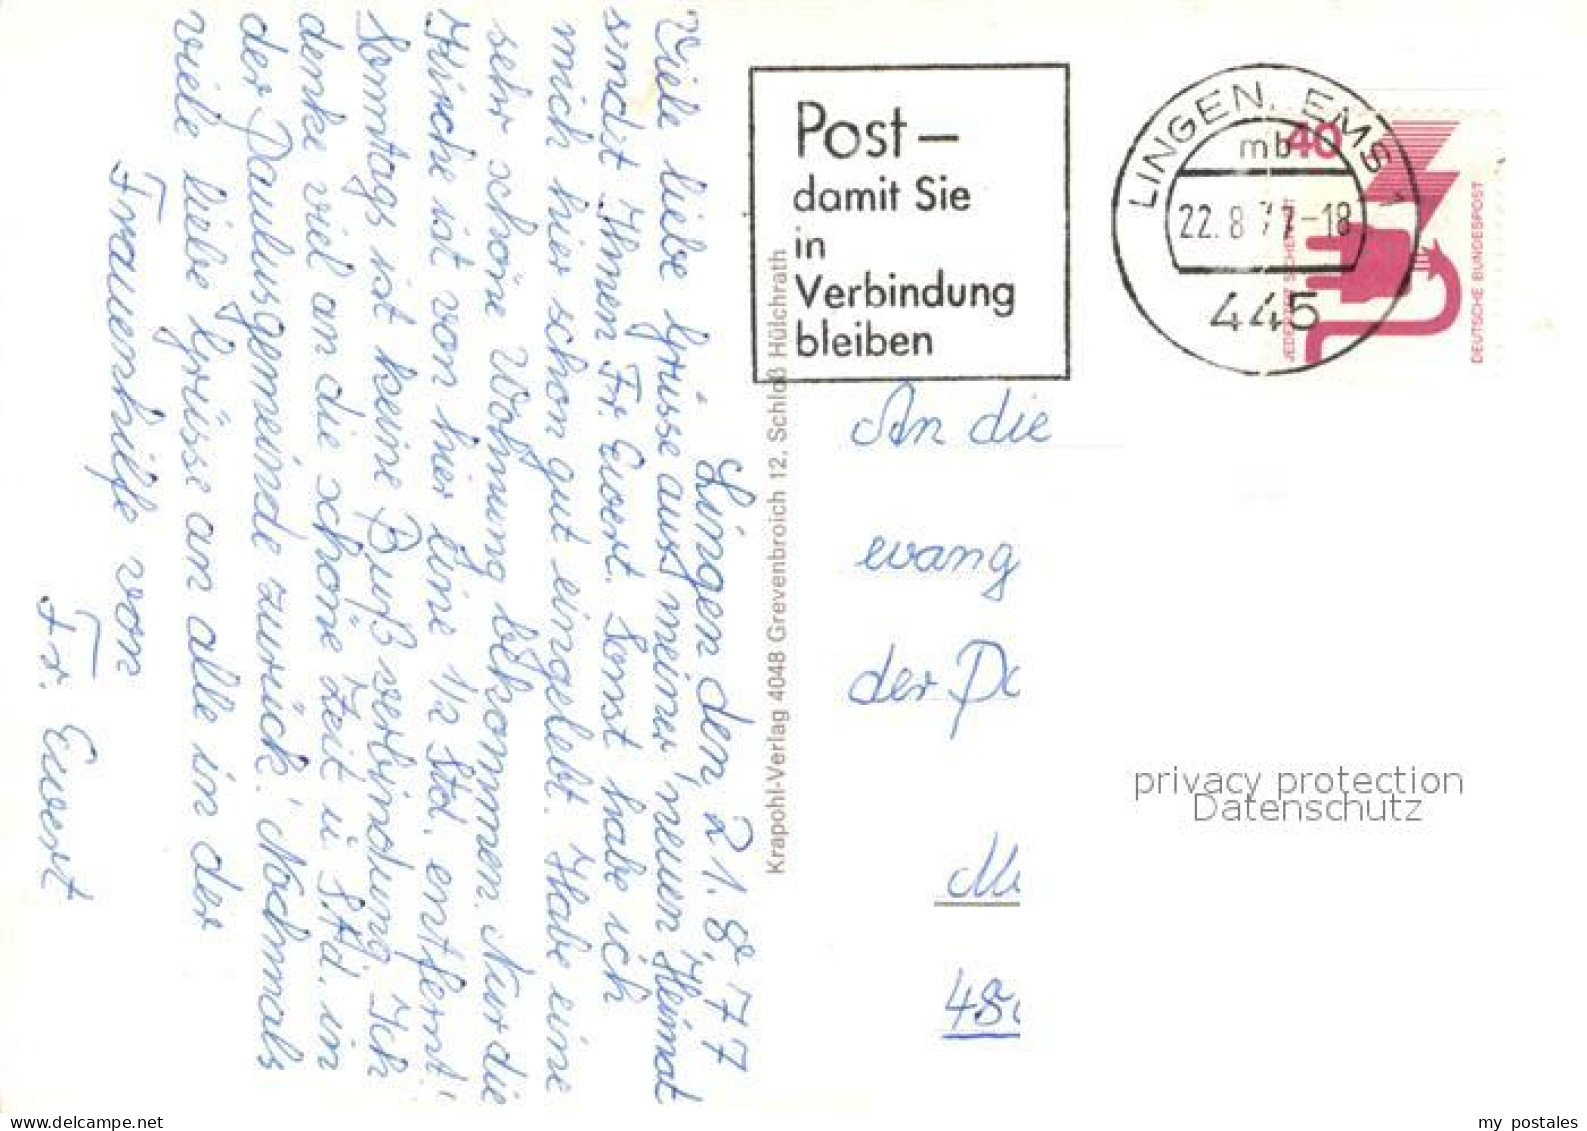 Lingen den, 21.8.77
Viele liebe Grüsse aus meiner neuen Heimat
sendet Ihnen Fr. Ewert. Sonst habe ich
mich hier schon gut eingelebt. Habe eine
sehr schöne Wohnung bekommen. Nur die
Kirche ist von hier eine 1/2 Std. entfernt!
Sonntags ist keine Bußverbindung. Ich
denke viel an die schöne Zeit u Std. in
der Paulusgemeinde zurück! Nochmals
viele liebe Grüsse an alle in der
Frauenhilfe von
Fr. Ewert
Krapohl-Verlag 4048 Grevenbroich 12, Schloß Hülchrath
Post –
damit Sie
in
Verbindung
bleiben
LINGEN, EMS 1
mb
22.8.77-18
445
40
JEDERZEIT SICHERHEIT
DEUTSCHE BUNDESPOST
An die
evang
der
privacy protection
Datenschutz
delcampe.net
my postales